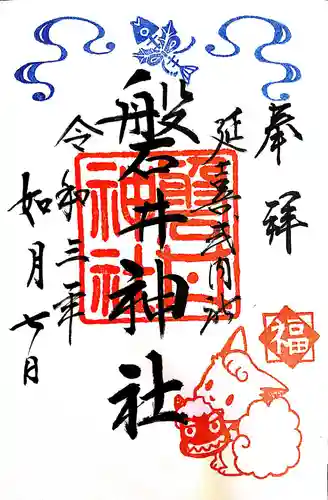 奉拝
延喜式内社
磐井神社
令和三年
如月七日
磐井神社
福